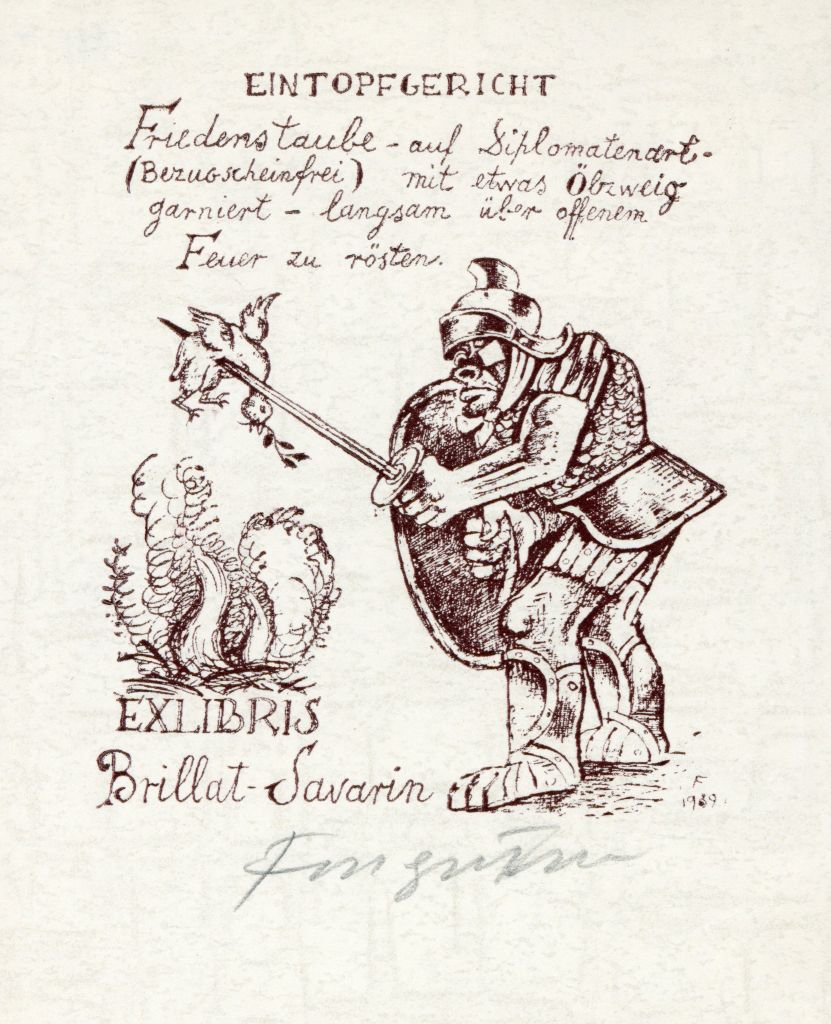 EINTOPFGERICHT
Friedenstaube - auf Diplomatenart -
(Bezugscheinfrei) mit etwas Ölzweig
garniert - langsam über offenem
Feuer zu rösten.
EXLIBRIS
Brillat-Savarin
F
1939